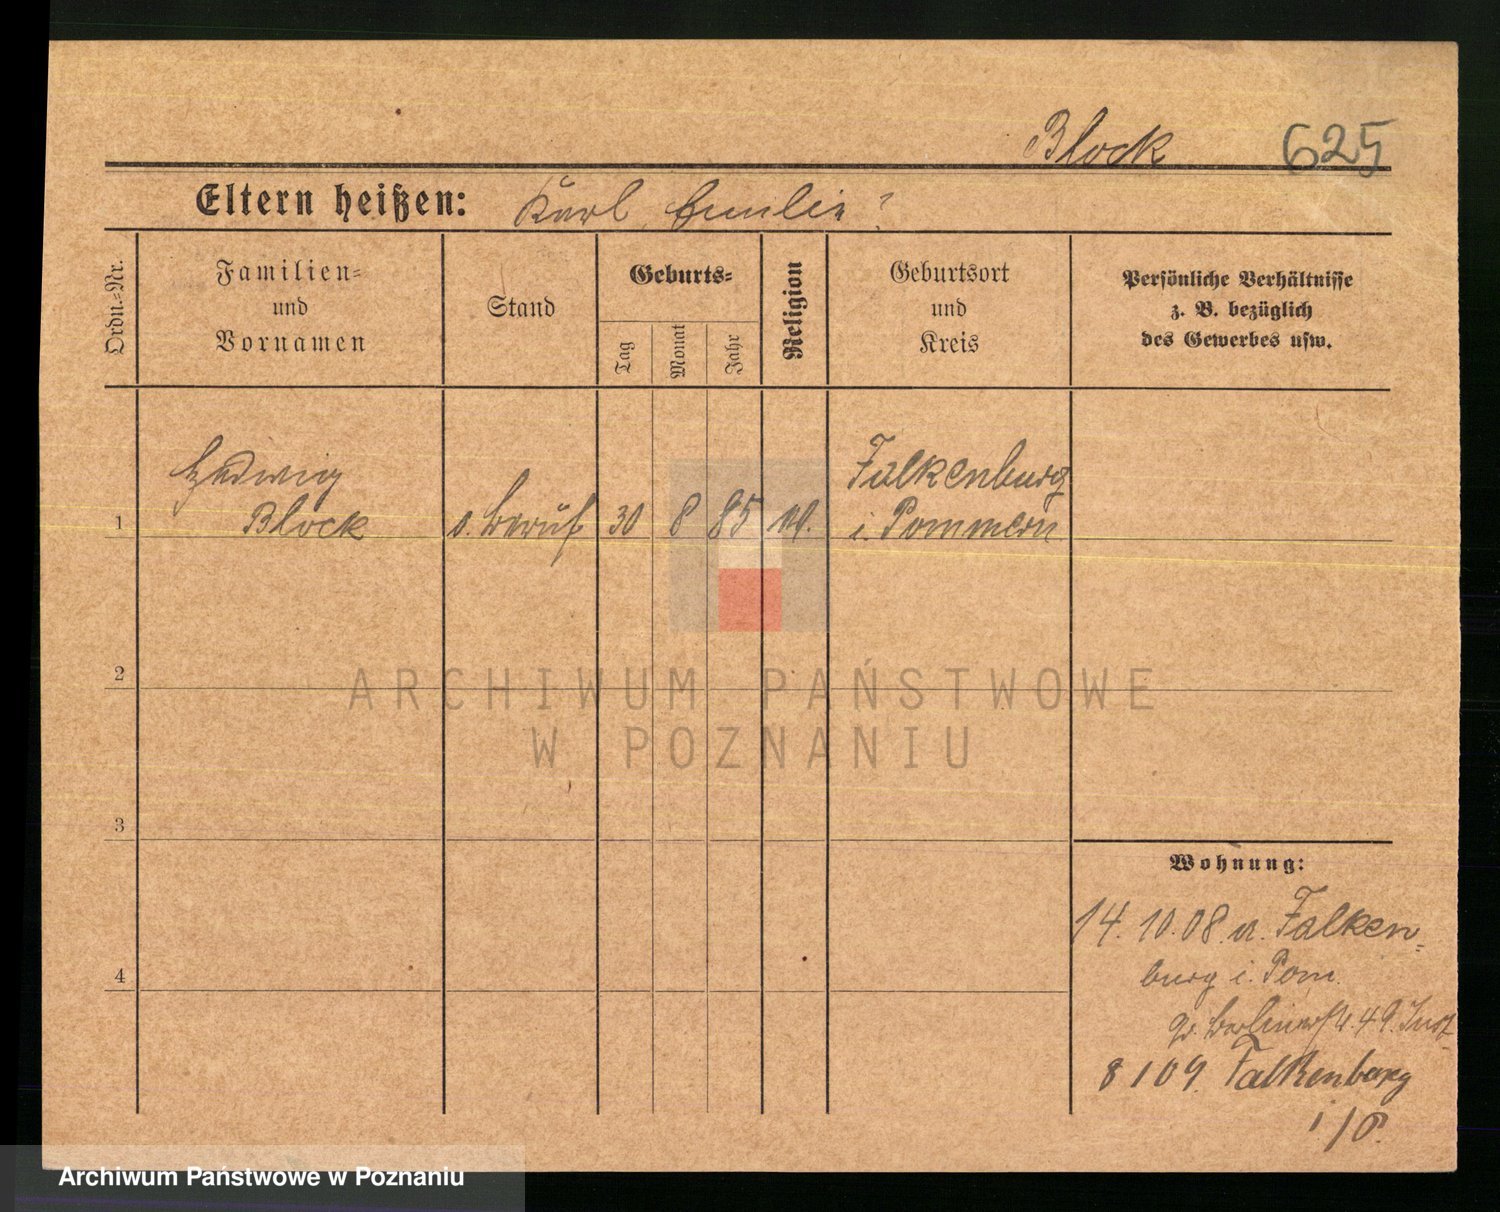 Block 625
Eltern heißen: Karl, Emilie?
Ordn.-Nr.
Familien-
und
Vornamen
Stand
Geburts-
Tag
Monat
Jahr
Religion
Geburtsort
und
Kreis
Persönliche Verhältnisse
z. B. bezüglich
des Gewerbes usw.
Hedwig
1 Block o. Beruf 30 8 85
Falkenburg
i. Pommern
2
ARCHIWUM PAŃSTWOWE
W POZNANIU
3
Wohnung:
14. 10. 08. a. Falken-
burg i. Pom.
gr. Berlinerstr. 49.
4
8 1 09. Falkenburg
i/P.
Archiwum Państwowe w Poznaniu